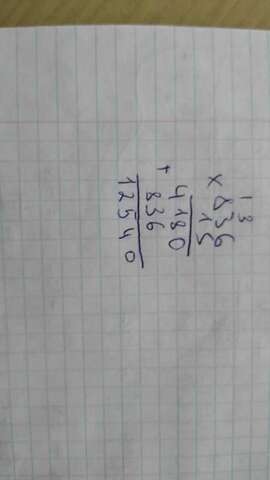 1 3
× 836
15
4180
+ 836
12540